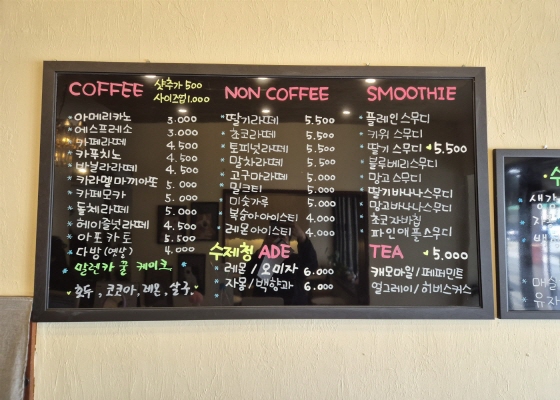 COFFEE
샷추가 500
사이즈업 1.000
아메리카노 3.000
에스프레소 3.000
카페라떼 4.500
카푸치노 4.500
바닐라라떼 4.500
카라멜마끼아또 5.000
카페모카 5.000
돌체라떼 5.000
헤이즐넛라떼 4.500
아포카토 5.500
다방 (옛날) 4.000
말렌카 꿀 케이크
호두, 코코아, 레몬, 살구.
NON COFFEE
딸기라떼 5.500
초코라떼 5.500
토피넛라떼 5.500
말차라떼 5.500
고구마라떼 5.500
밀크티 5.000
미숫가루 5.000
복숭아아이스티 4.000
레몬아이스티 4.000
수제청 ADE
레몬 / 오미자 6.000
자몽 / 백향과 6.000
SMOOTHIE
플레인 스무디
키위 스무디
딸기 스무디 5.500
블루베리스무디
망고 스무디
딸기바나나스무디
망고바나나스무디
초코자바칩
파인애플스무디
TEA 5.000
캐모마일 / 페퍼민트
얼그레이 / 히비스커스